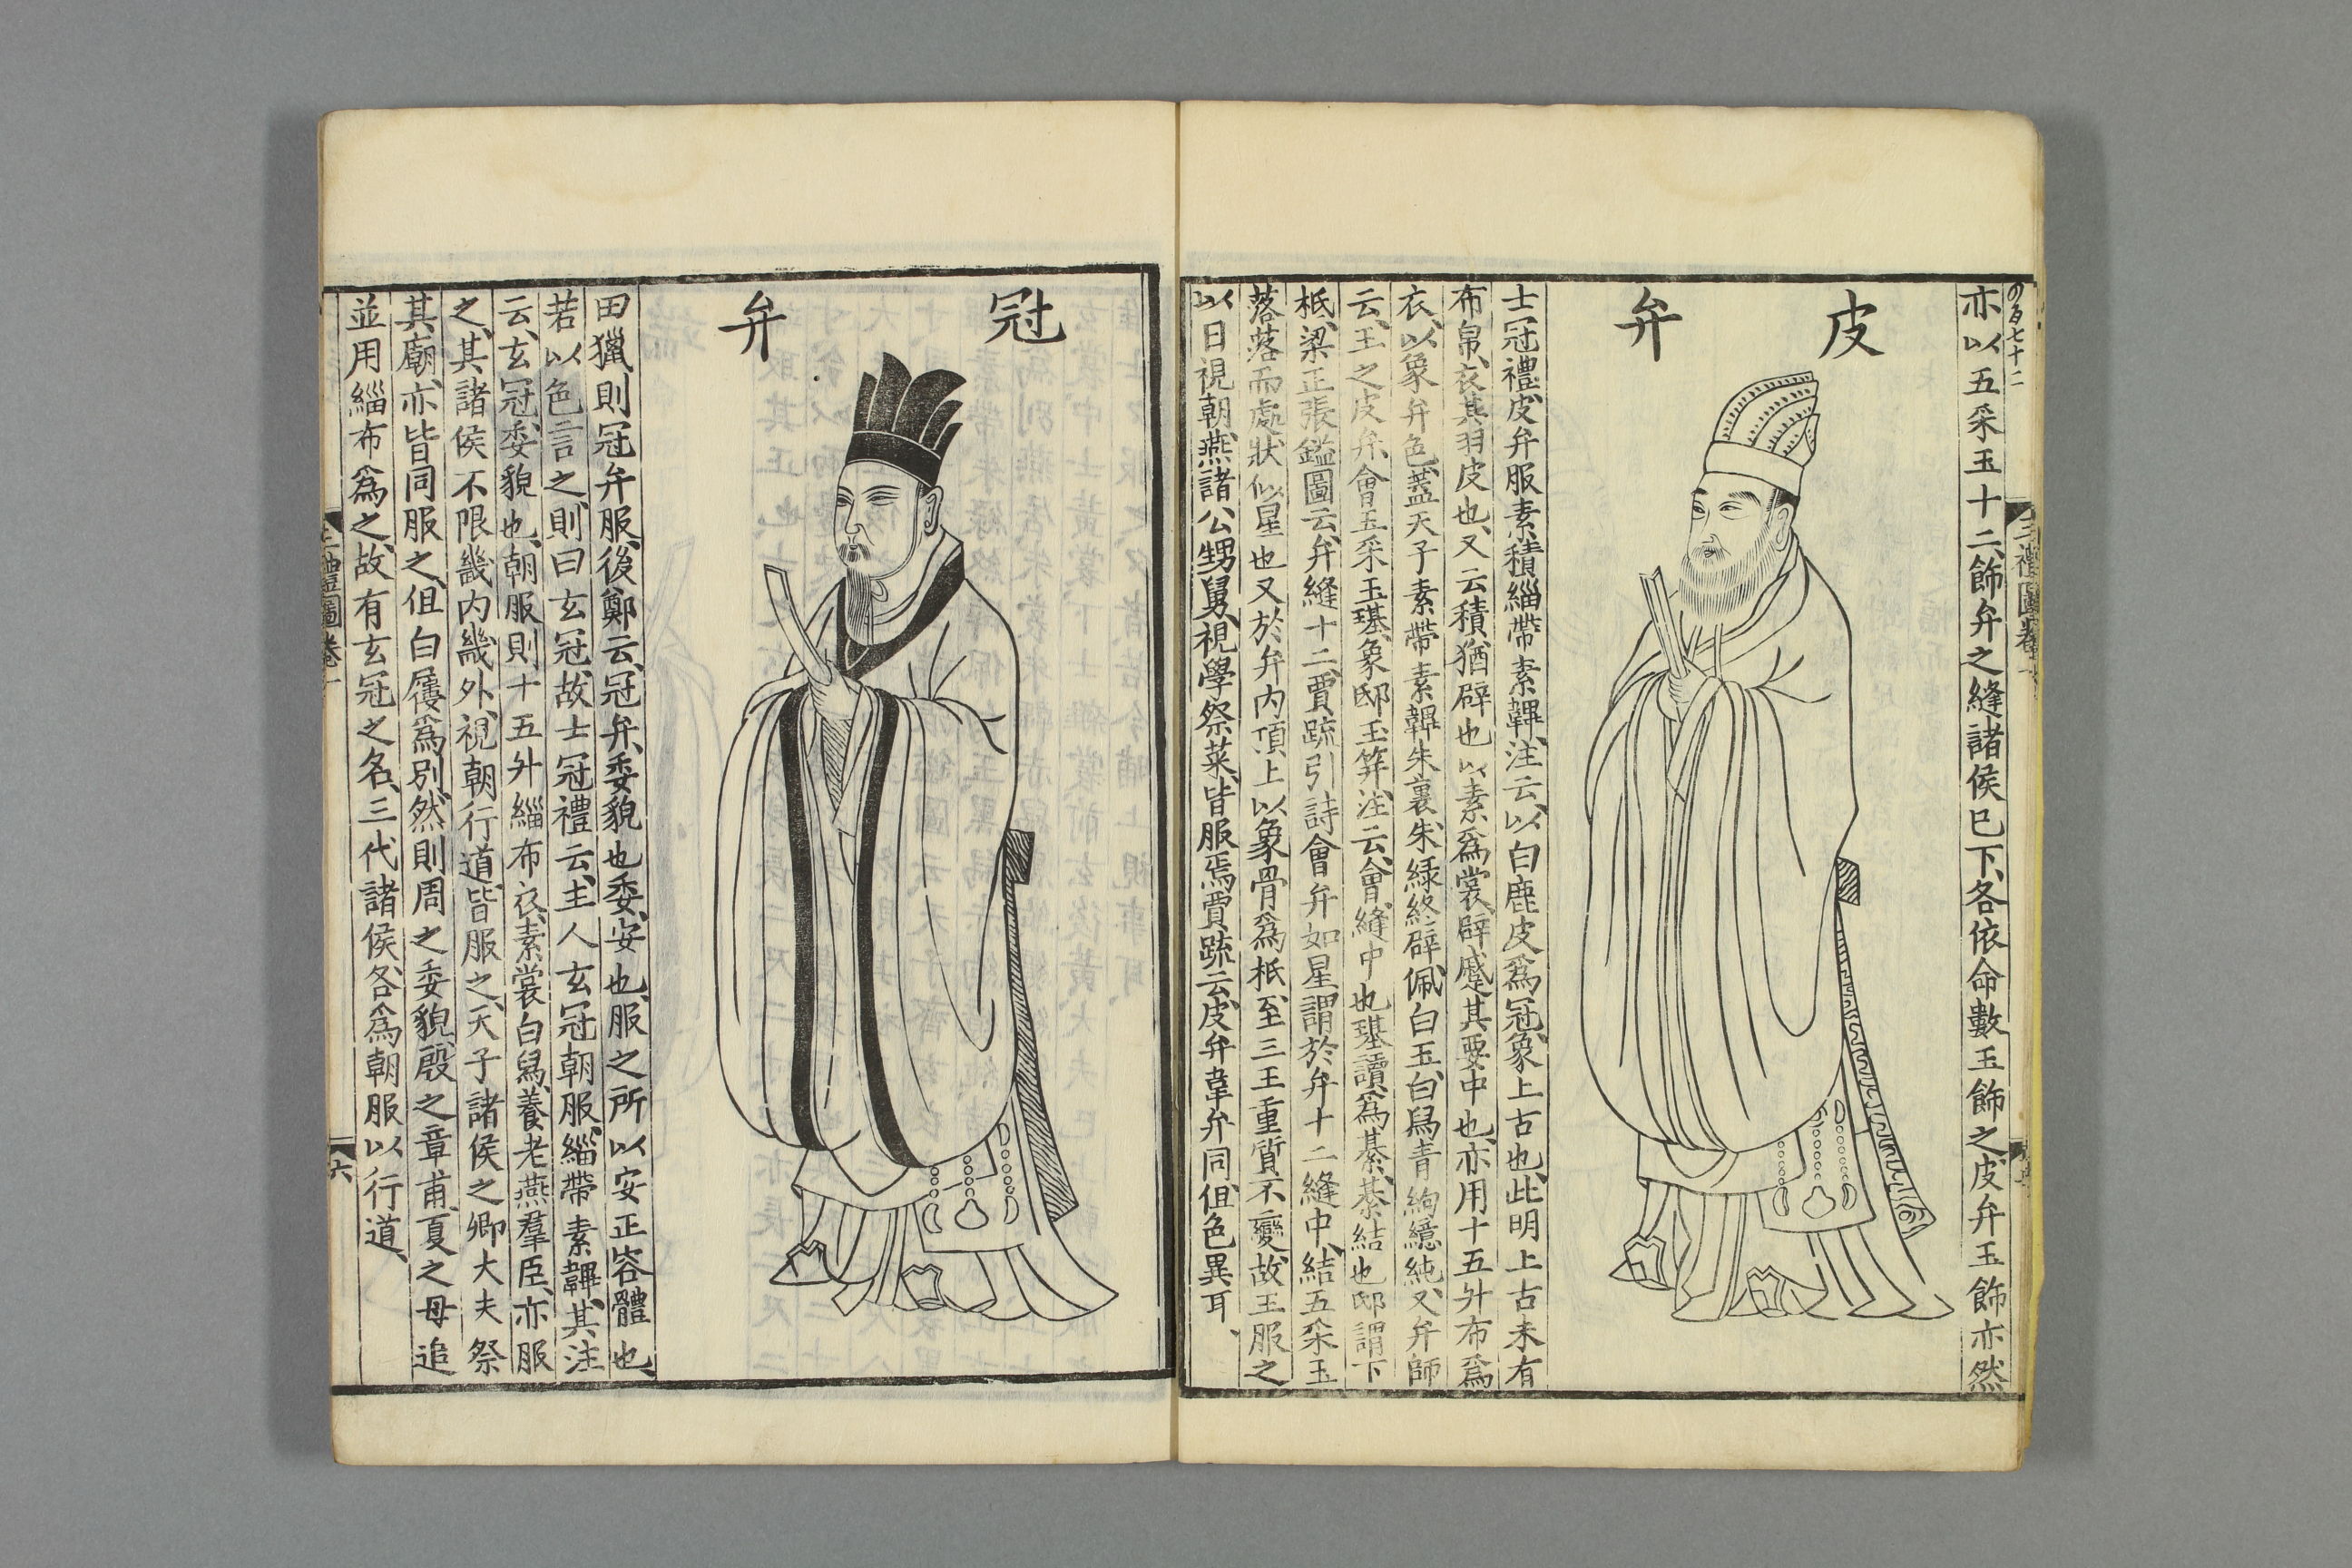 亦以五采玉十二飾弁之縫諸侯已下各依命數玉飾之皮弁玉飾亦然
皮弁
士冠禮皮弁服素積緇帶素韠注云以白鹿皮爲冠象上古也此明上古未有
布帛衣其羽皮也又云積猶辟也以素爲裳辟蹙其要中也亦用十五升布爲
衣以象弁色蓋天子素帶素韠朱裏朱緑終辟佩白玉白舄青絇繶純又弁師
云王之皮弁會五采玉璂象邸玉笄注云會縫中也璂讀爲綦綦結也邸謂下
柢梁正張鎰圖云弁縫十二賈疏引詩會弁如星謂於弁十二縫中結五采玉
落落而處狀似星也又於弁内頂上以象骨爲柢至三王重質不變故王服之
以日視朝燕諸公甥舅視學祭菜皆服焉賈疏云皮弁韋弁同但色異耳
冠弁
田獵則冠弁服後鄭云冠弁委貌也委安也服之所以安正容體也
若以色言之則曰玄冠故士冠禮云主人玄冠朝服緇帶素韠其注
云玄冠委貌也朝服則十五升緇布衣素裳白舄養老燕羣臣亦服
之其諸侯不限畿内畿外視朝行道皆服之天子諸侯之卿大夫祭
其廟亦皆同服之但白屨爲別然則周之委貌殷之章甫夏之毋追
並用緇布爲之故有玄冠之名三代諸侯各爲朝服以行道
三禮圖卷一
六